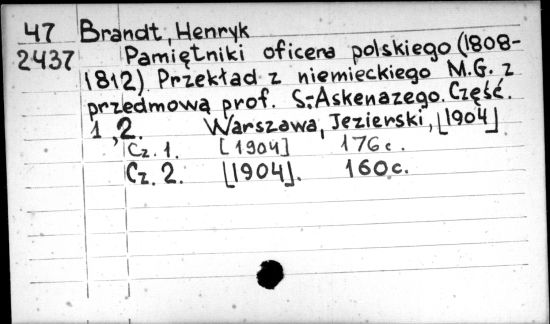 47 Brandt, Henryk
2437 Pamiętniki oficera polskiego (1808-
1812) Przekład z niemieckiego M.G. z
przedmową prof. S. Askenazego. Część.
1, 2. Warszawa, Jezierski, [1904]
Cz. 1. [1904] 176 c.
Cz. 2. [1904]. 160 c.